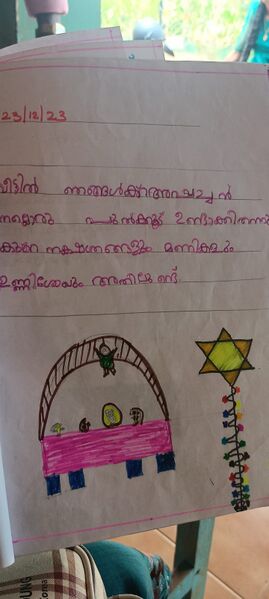 23/12/23
വീട്ടിൽ ഞങ്ങൾക്ക് അപ്പച്ചൻ
നല്ലൊരു പുൽക്കൂട് ഉണ്ടാക്കിതന്നു
കുറേ നക്ഷത്രങ്ങളും മണികളും
ഉണ്ണിശോയും അതിലുണ്ട്